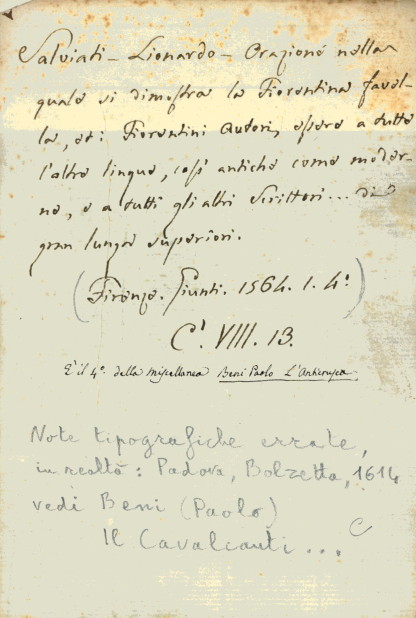 Salviati - Lionardo - Orazione nella
quale si dimostra la Fiorentina favel-
la, ed i Fiorentini Autori, essere a tutte
l'altre lingue, così antiche come moder-
ne, e a tutti gli altri Scrittori... di
gran lunga superiori.
(Firenze. Giunti. 1564. 1. 4°.)
C' VIII. 13.
E' il 4°. della Miscellanea Beni Paolo L'Anticrusca.
Note tipografiche errate,
in realtà: Padova, Bolzetta, 1614
vedi Beni (Paolo)
Il Cavalcanti...